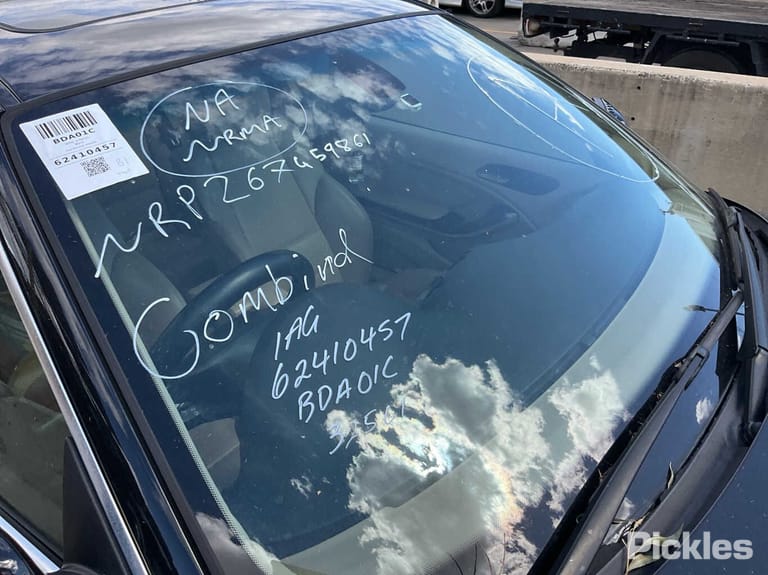 BDA01C
62410457
NA
NRMA
NRP267459861
Combind
IAG
62410457
BDA01C
Pickles